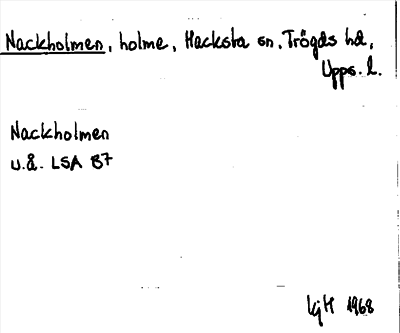 Nackholmen, holme, Hacksta sn, Trögds hd,
Upps. l.
Nackholmen
u.å. LSA B7
1968